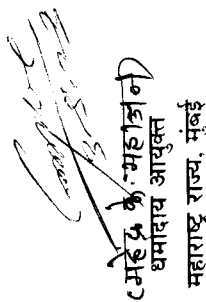 (महेंद्र के. महाजन)
धर्मादाय आयुक्त
महाराष्ट्र राज्य, मुंबई